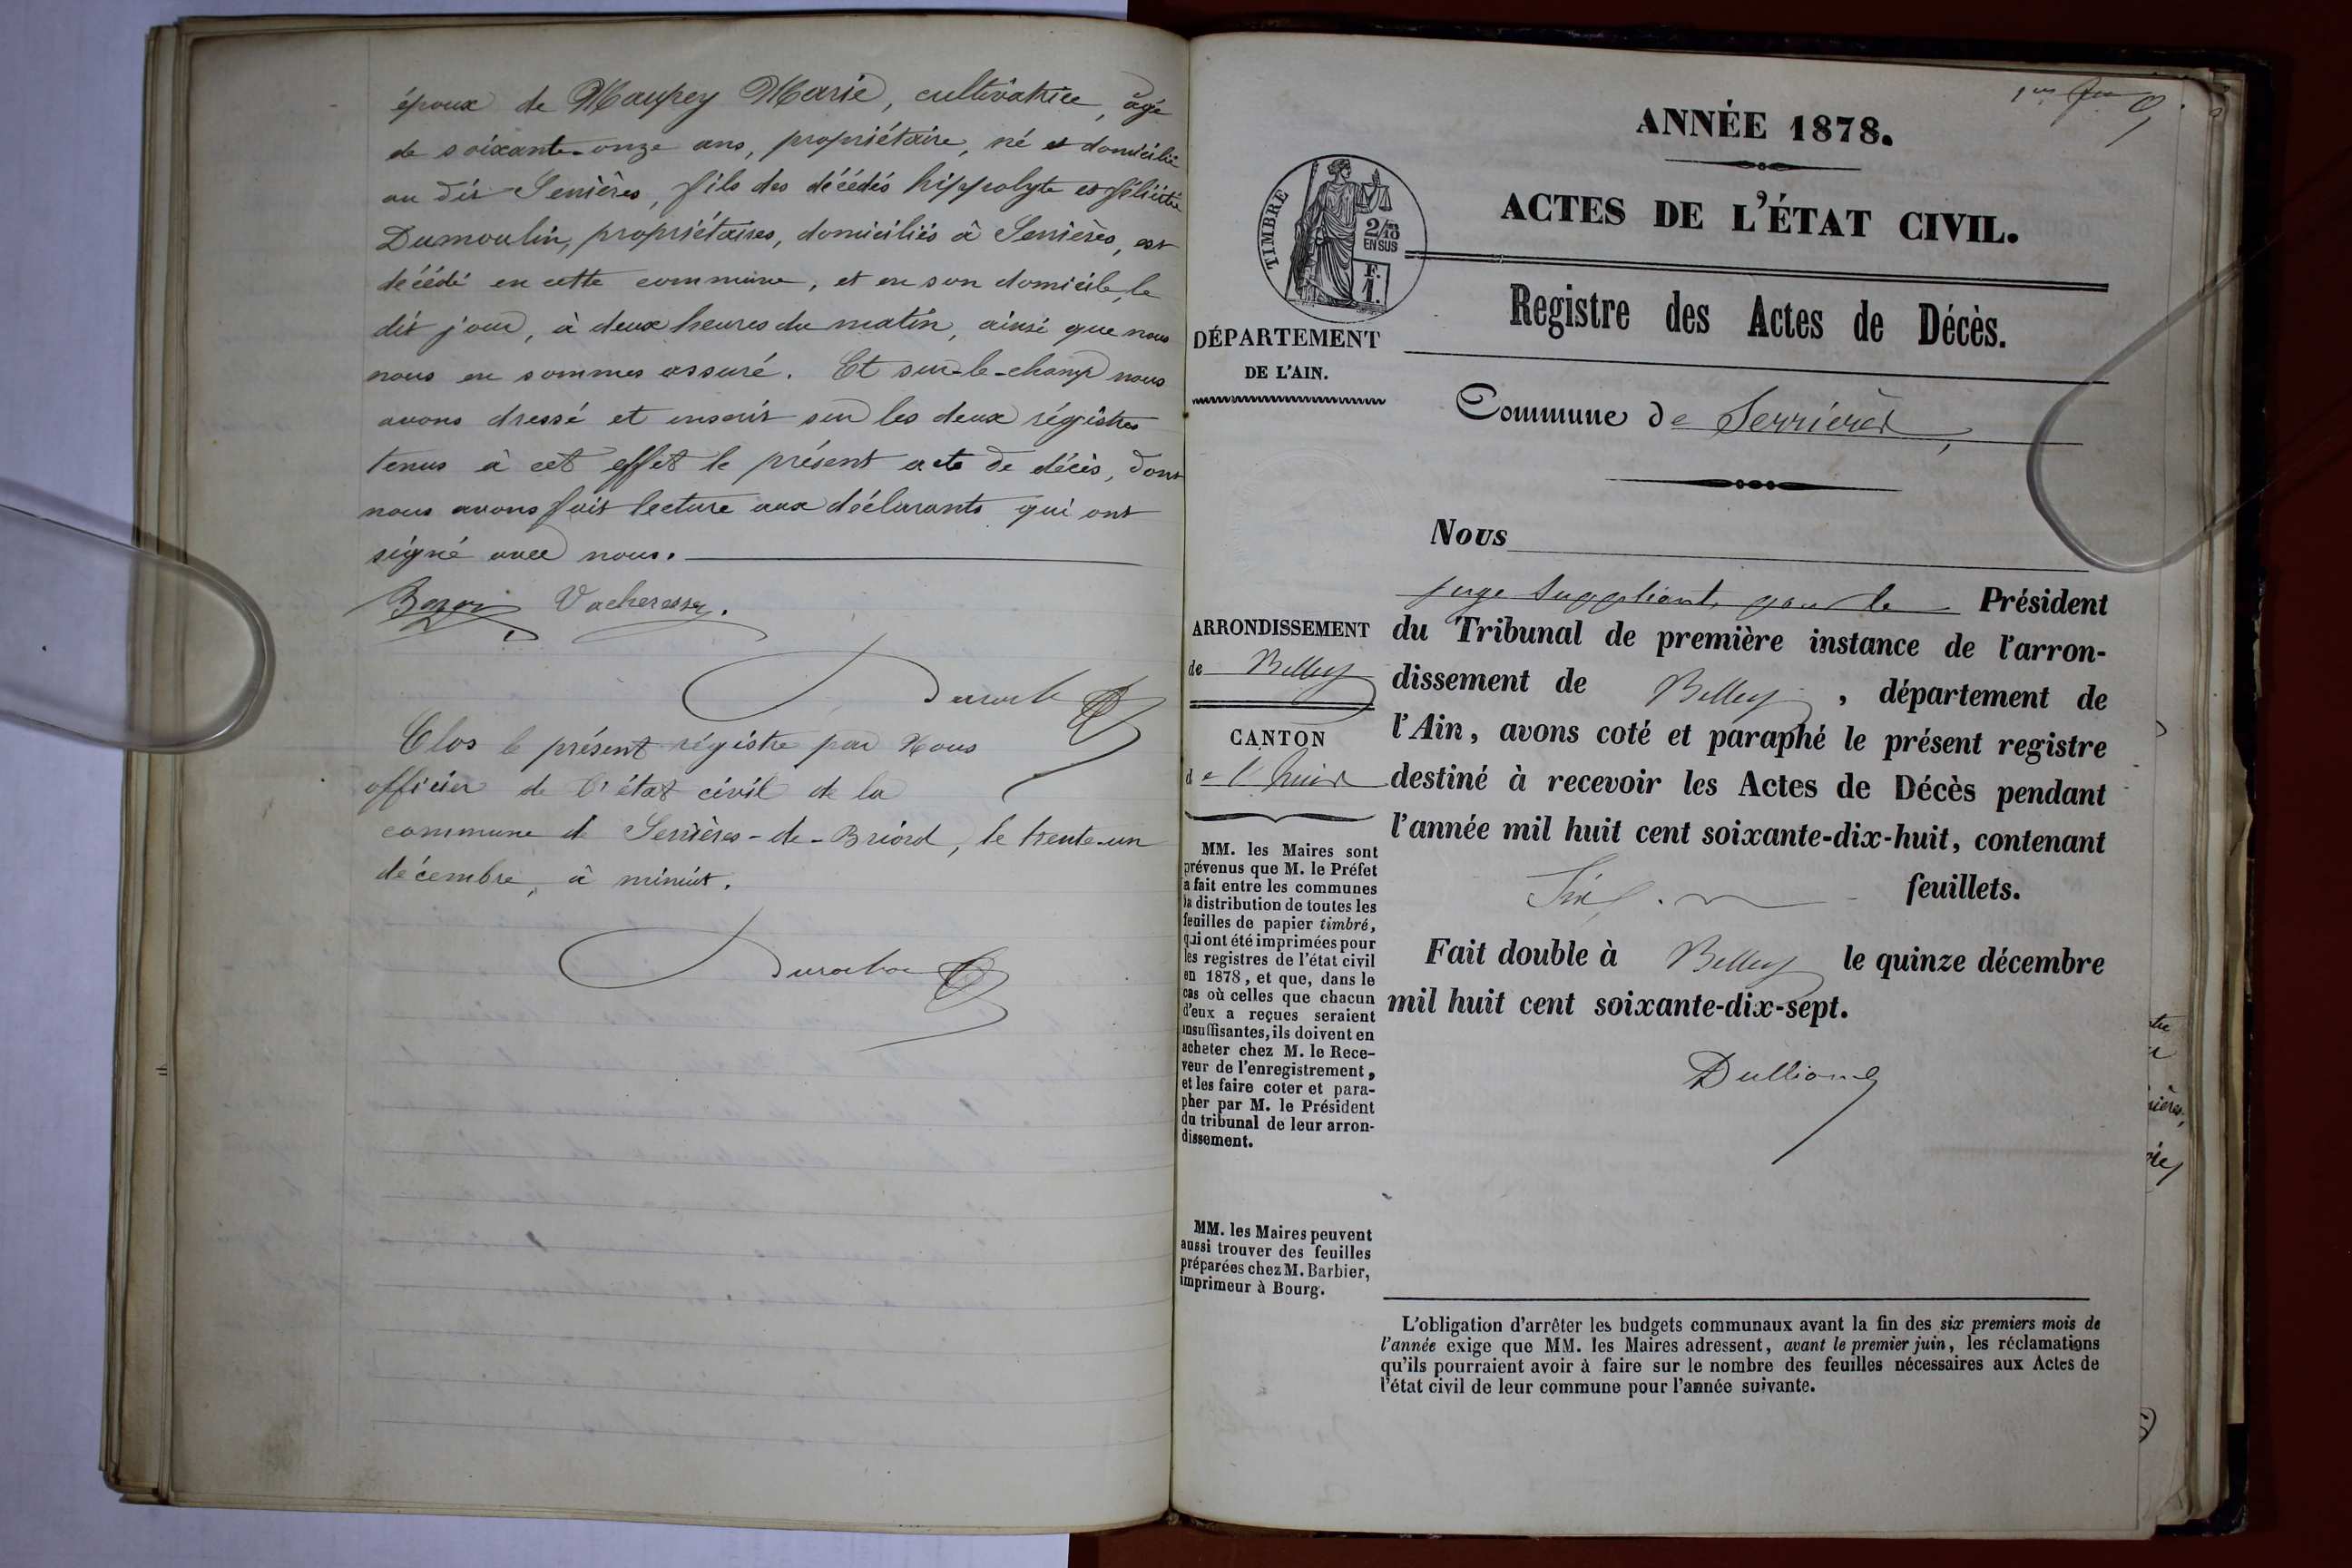 époux de Maupey Marie, cultivatrice, âgé
de soixante-onze ans, propriétaire, né et domicilié
au dit Serrières, fils des décédés hippolyte et
Dumoulin, propriétaires, domiciliés à Serrières, est
décédé en cette commune, et en son domicile, le
dit jour, à deux heures du matin, ainsi que nous
nous en sommes assuré. Et sur-le-champ nous
avons dressé et inscrit sur les deux régistres
tenus à cet effet le présent acte de décès, dont
nous avons fait lecture aux déclarants qui ont
signé avec nous.
Vacheresse.
Clos le présent régistre par Nous
officier de l'état civil de la
commune de Serrières-de-Briord, le trente-un
décembre, à minuit.
ANNÉE 1878.
ACTES DE L'ÉTAT CIVIL.
TIMBRE
2/10
EN SUS
F.
1.
Registre des Actes de Décès.
DÉPARTEMENT
DE L'AIN.
Commune de Serrières,
Nous
juge suppléant, pour le Président
du Tribunal de première instance de l'arron-
dissement de Belley, département de
l'Ain, avons coté et paraphé le présent registre
destiné à recevoir les Actes de Décès pendant
l'année mil huit cent soixante-dix-huit, contenant
Six feuillets.
Fait double à Belley le quinze décembre
mil huit cent soixante-dix-sept.
ARRONDISSEMENT
de Belley
CANTON
de l'huis
MM. les Maires sont
prévenus que M. le Préfet
a fait entre les communes
la distribution de toutes les
feuilles de papier timbré,
qui ont été imprimées pour
les registres de l'état civil
en 1878, et que, dans le
cas où celles que chacun
d'eux a reçues seraient
insuffisantes, ils doivent en
acheter chez M. le Rece-
veur de l'enregistrement,
et les faire coter et para-
pher par M. le Président
du tribunal de leur arron-
dissement.
MM. les Maires peuvent
aussi trouver des feuilles
préparées chez M. Barbier,
imprimeur à Bourg.
L'obligation d'arrêter les budgets communaux avant la fin des six premiers mois de
l'année exige que MM. les Maires adressent, avant le premier juin, les réclamations
qu'ils pourraient avoir à faire sur le nombre des feuilles nécessaires aux Actes de
l'état civil de leur commune pour l'année suivante.